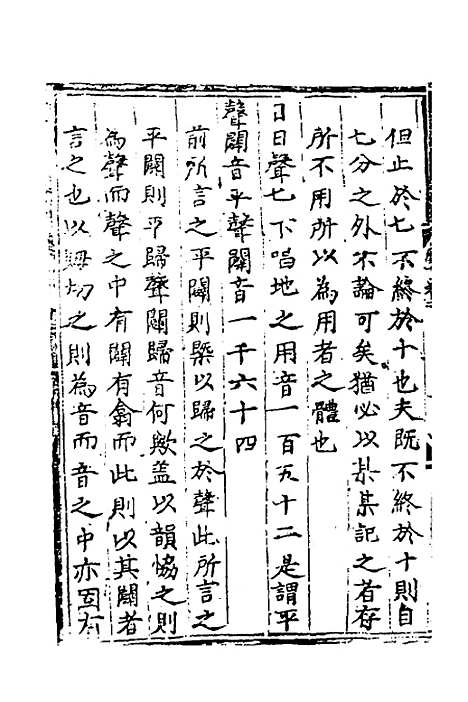 但止於七不終於十也夫既不終於十則自
七分之外不論可矣猶必以某某記之者存
所不用所以為用者之體也
日日聲七下唱地之用音一百五十二是謂平
聲闢音平聲闢音一千六十四
前所言之平闢則槩以歸之於聲此所言之
平闢則平歸聲闢歸音何歟盖以韻恊之則
為聲而聲之中有闢有翕而此則以其闢者
言之也以母切之則為音而音之中亦固有